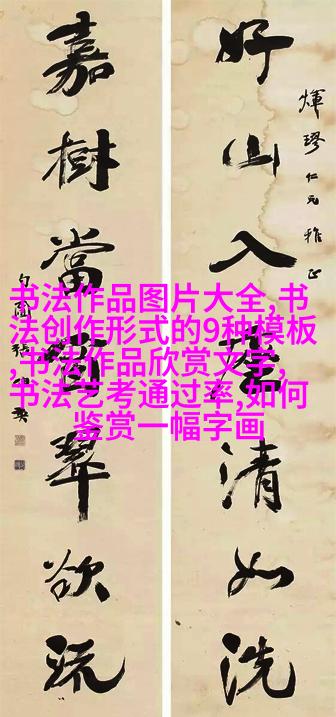 好山入座清如洗
煇璆仁兄雅正
嘉樹當窗翠欲流
书法作品图片大全,书
法创作形式的9种模板
,书法作品欣赏文字,
书法艺考通过率,如何
鉴赏一幅字画